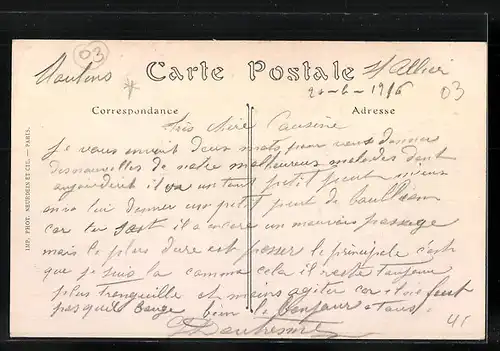 03
Moulins
Carte Postale
s/ Allier
20-6-1916
03
Correspondance
Adresse
Très chère Cousine
Je vous envoit deux mots pour vous donner
des nouvelles de notre malheureux malades dont
aujourdhuit il va un tout petit peut mieux
on a lui donner un petit peut de boullion
car la il a encore un mauvais passage
mais le plus dure est passer le principale c'est
que je suis la comme cela il reste toujour
plus trenquille et moins agiter car il ne faut
pas quil bouge bien le bonjour a tous
IMP. PHOT. NEURDEIN ET CIE. — PARIS.